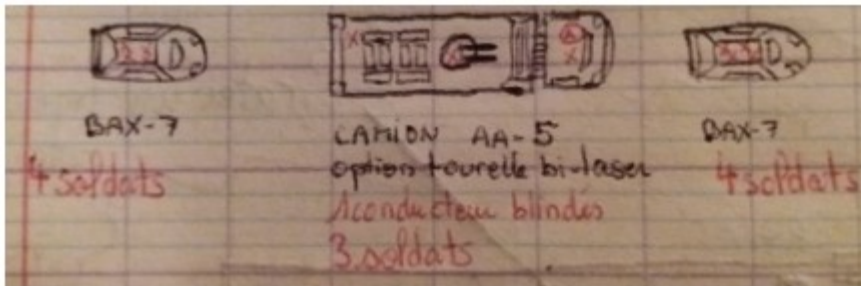 BAX-7
4 soldats
CAMION AA-5
option tourelle bi-laser
1 conducteur blindés
3 soldats
BAX-7
4 soldats